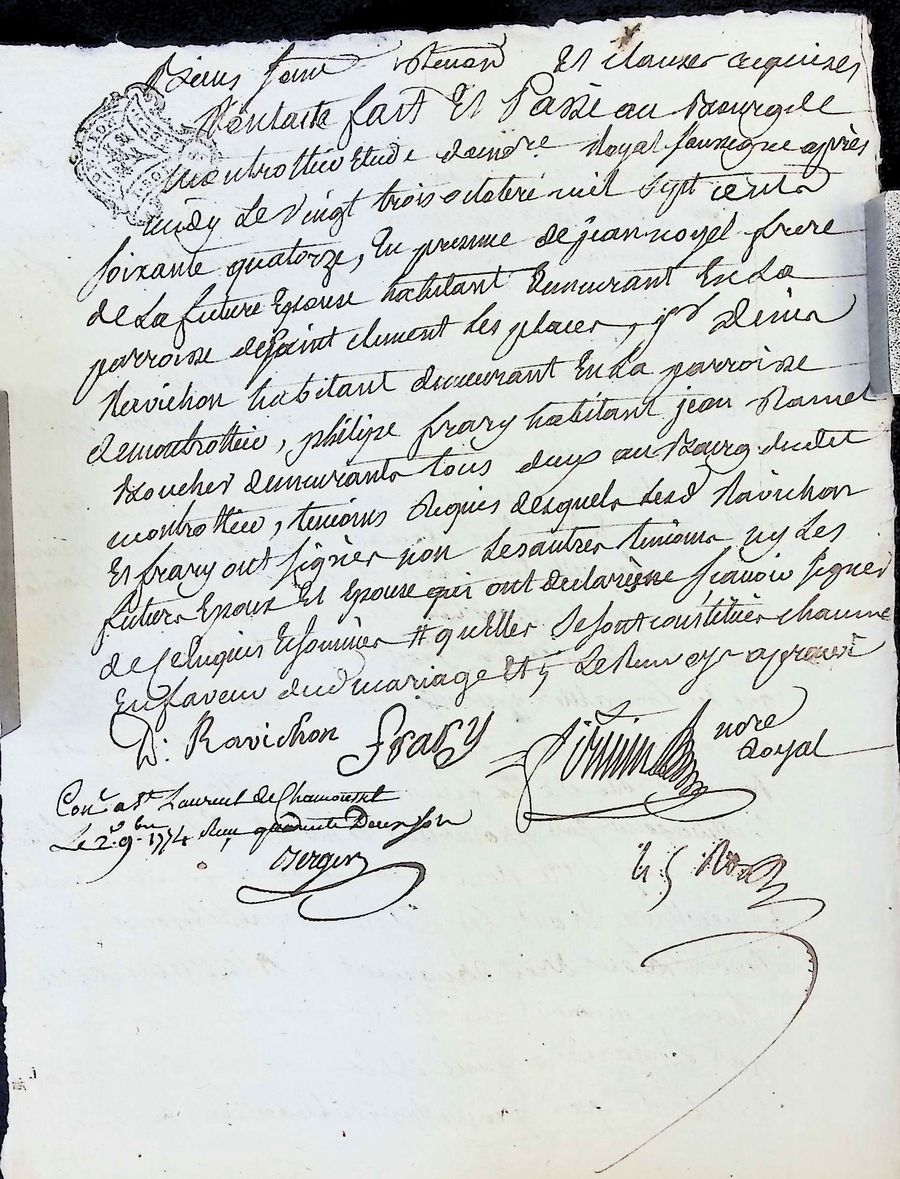 Biens sans Renon Et clauses requises
Dontacte fait Et Passé au Bourg de
montrottier Etude dudnore. Royal soussigne après
midy Le Vingt trois octobre mil sept cents
soixante quatorze, En presence de jean noyel frere
de La future Epouse habitant demeurant En La
parroisse de saint clement Les places, sr denis
Ravichon habitant demeurant En La parroisse
de montrottier, philipe frary habitant jean Ramel
Boucher demeurants tous deux au Bourg dudit
montrottier, temoins Requis desquels Lesd Ravichon
Et frary ont signés non Lesautres temoins ny Les
futurs Epoux Et Epouse qui ont declarésne scavoir signer
de ce Enquis Et sommés # quelles se sont constitués chacune
En faveur dud mariage
D: Ravichon Frary nore
Royal
Con.e a St. Laurent de Chamousset
Le 2e. 9.bre 1774 Reçu quarante Deux sols
Berger